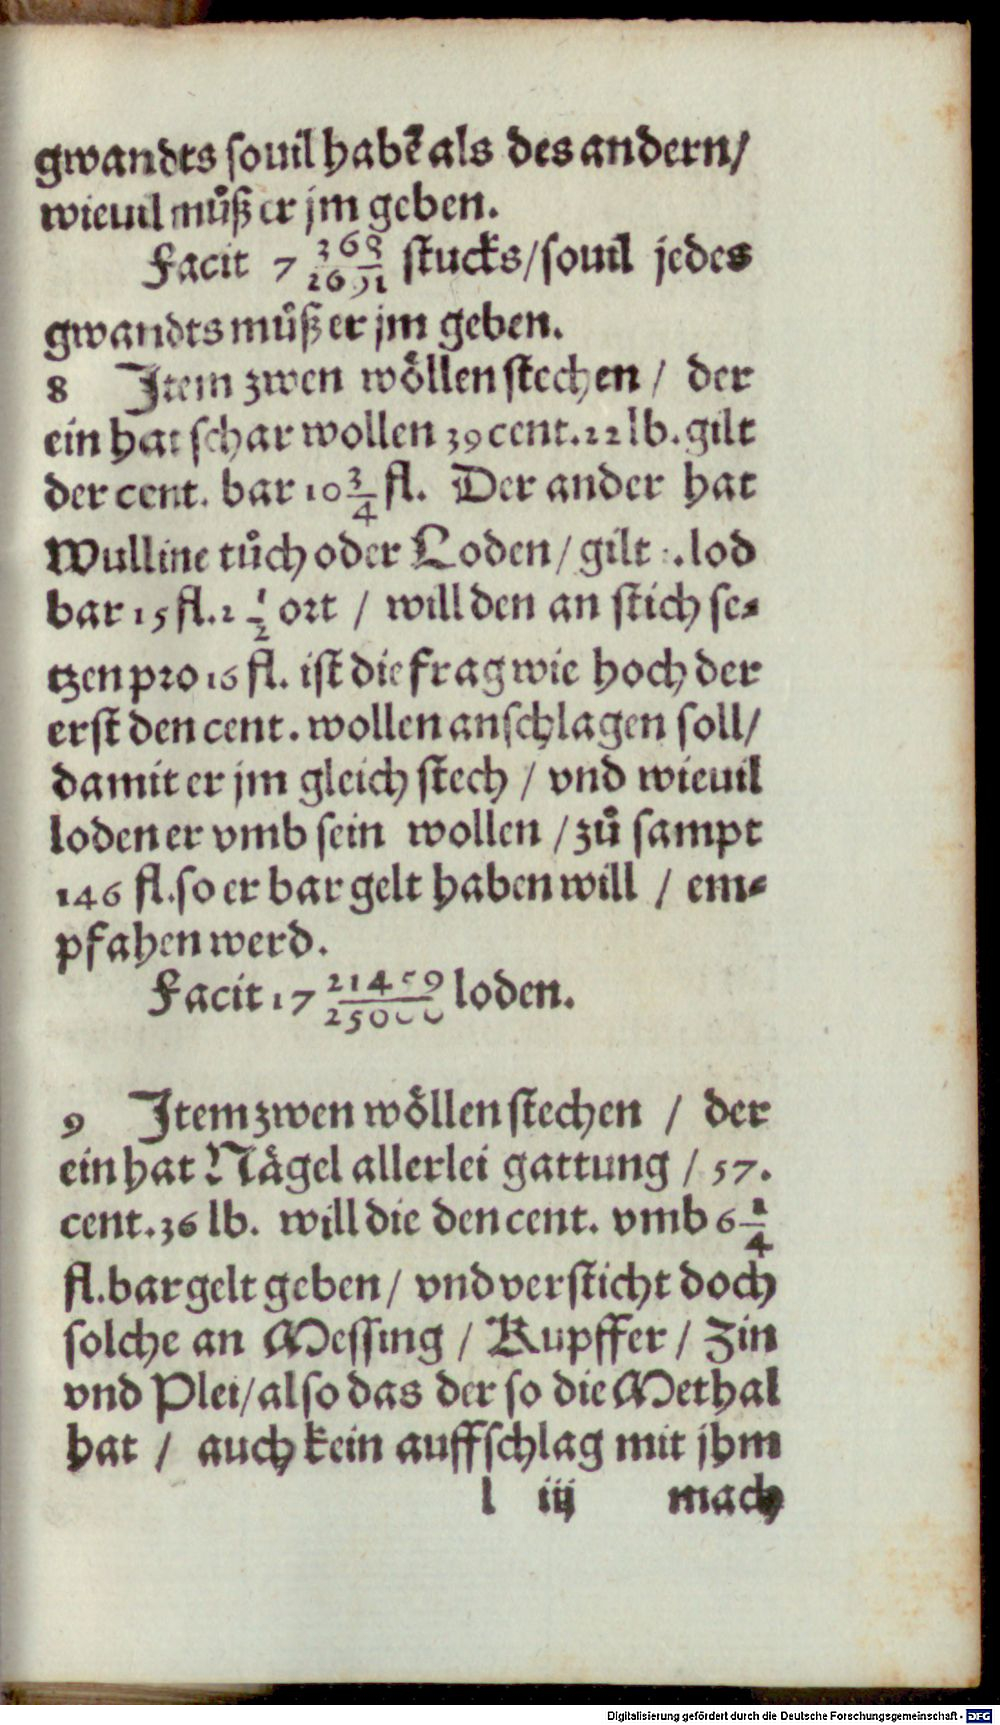 gwandts souil habē als des andern/
wieuil můß er jm geben.
Facit 7 369/2691 stucks/souil jedes
gwandts můß er jm geben.
8 Item zwen wöllen stechen / der
ein hat schar wollen 39 cent. 22 lb. gilt
der cent. bar 10 3/4 fl. Der ander hat
Wulline tůch oder Loden/ gilt 1. lod
bar 15 fl. 2 1/2 ort / will den an stich se⸗
tzen pro 16 fl. ist die frag wie hoch der
erst den cent. wollen anschlagen soll/
damit er jm gleich stech / vnd wieuil
loden er vmb sein wollen / zů sampt
146 fl. so er bar gelt haben will / em⸗
pfahen werd.
Facit 17 21459/25000 loden.
9 Item zwen wöllen stechen / der
ein hat Nägel allerlei gattung / 57.
cent. 36 lb. will die den cent. vmb 6 1/4
fl. bar gelt geben/ vnd versticht doch
solche an Messing / Kupffer / Zin
vnd Plei/ also das der so die Methal
hat / auch kein auffschlag mit jhm
l iij mach
Digitalisierung gefördert durch die Deutsche Forschungsgemeinschaft - DFG